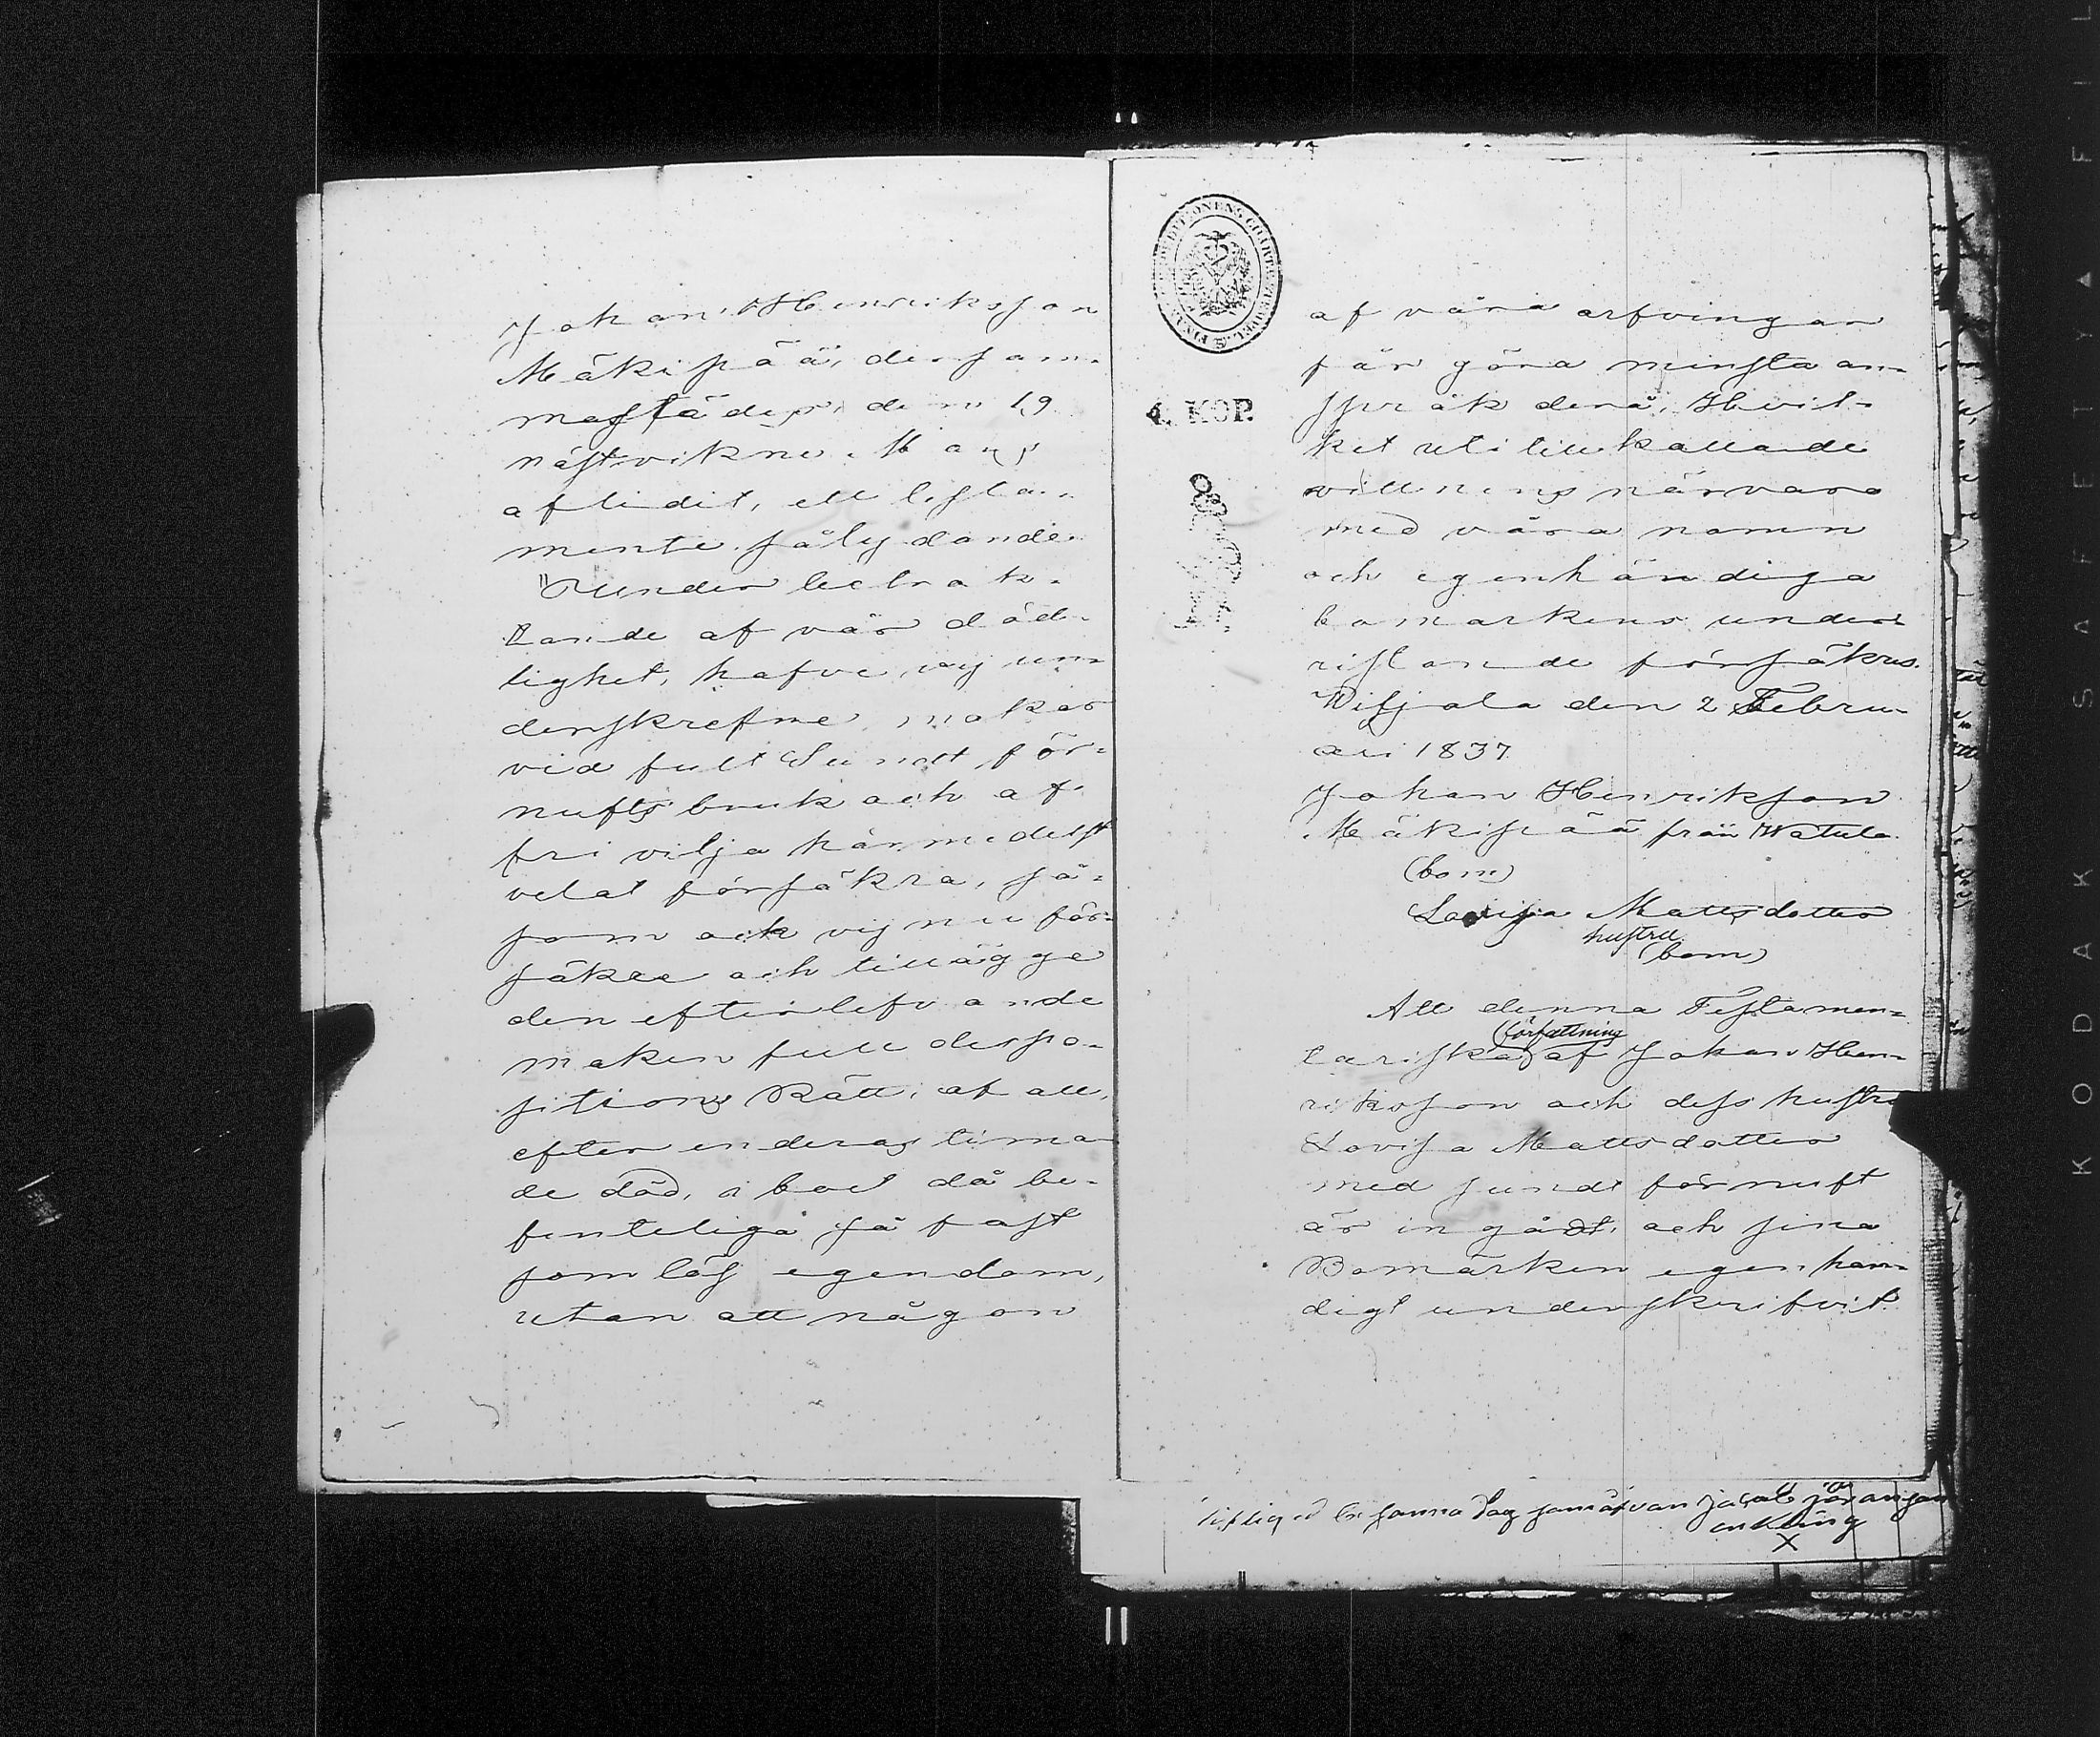 Johan Henriksson
Mäkipää, dersam-
mastädes, den 19
nästvikne Maij
aflidit, ett testa-
mente så lydande:
"Under betrak-
tande af vår död-
lighet, hafve vij un-
derskrefne makar
vid fullt Sundt för-
nufts bruk och af
fri vilja härmedelst
velat försäkra, så-
som ock vij nu för-
säkre och tillägge
den efterlefvande
maken full dispo-
sitions Rätt, af all,
efter enderas tima-
de död, i boet då be-
finteliga så fast
som lös egendom,
utan att någon
4. KOP.
af våra arfvingar
får göra minsta an-
språk derå, Hvil-
ket uti tillkallade
vittnens närvaro
med våra namn
och egenhändiga
bomärkens under-
ristande försäkras.
Wisjala den 2 Febru-
ari 1837
Johan Henrikson
Mäkipää från Watula
(bom)
Lovisa Mattsdotter
hustru
(bom)
Att denna Testamen-
författning
tariska af Johan Hen-
riksson och dess hustru
Lovisa Mattsdotter
med sundt förnuft
är ingådt, och sina
Bomärken egenhän-
digt underskrifvit
samma dag
enkling
X
KODAK SAFETY